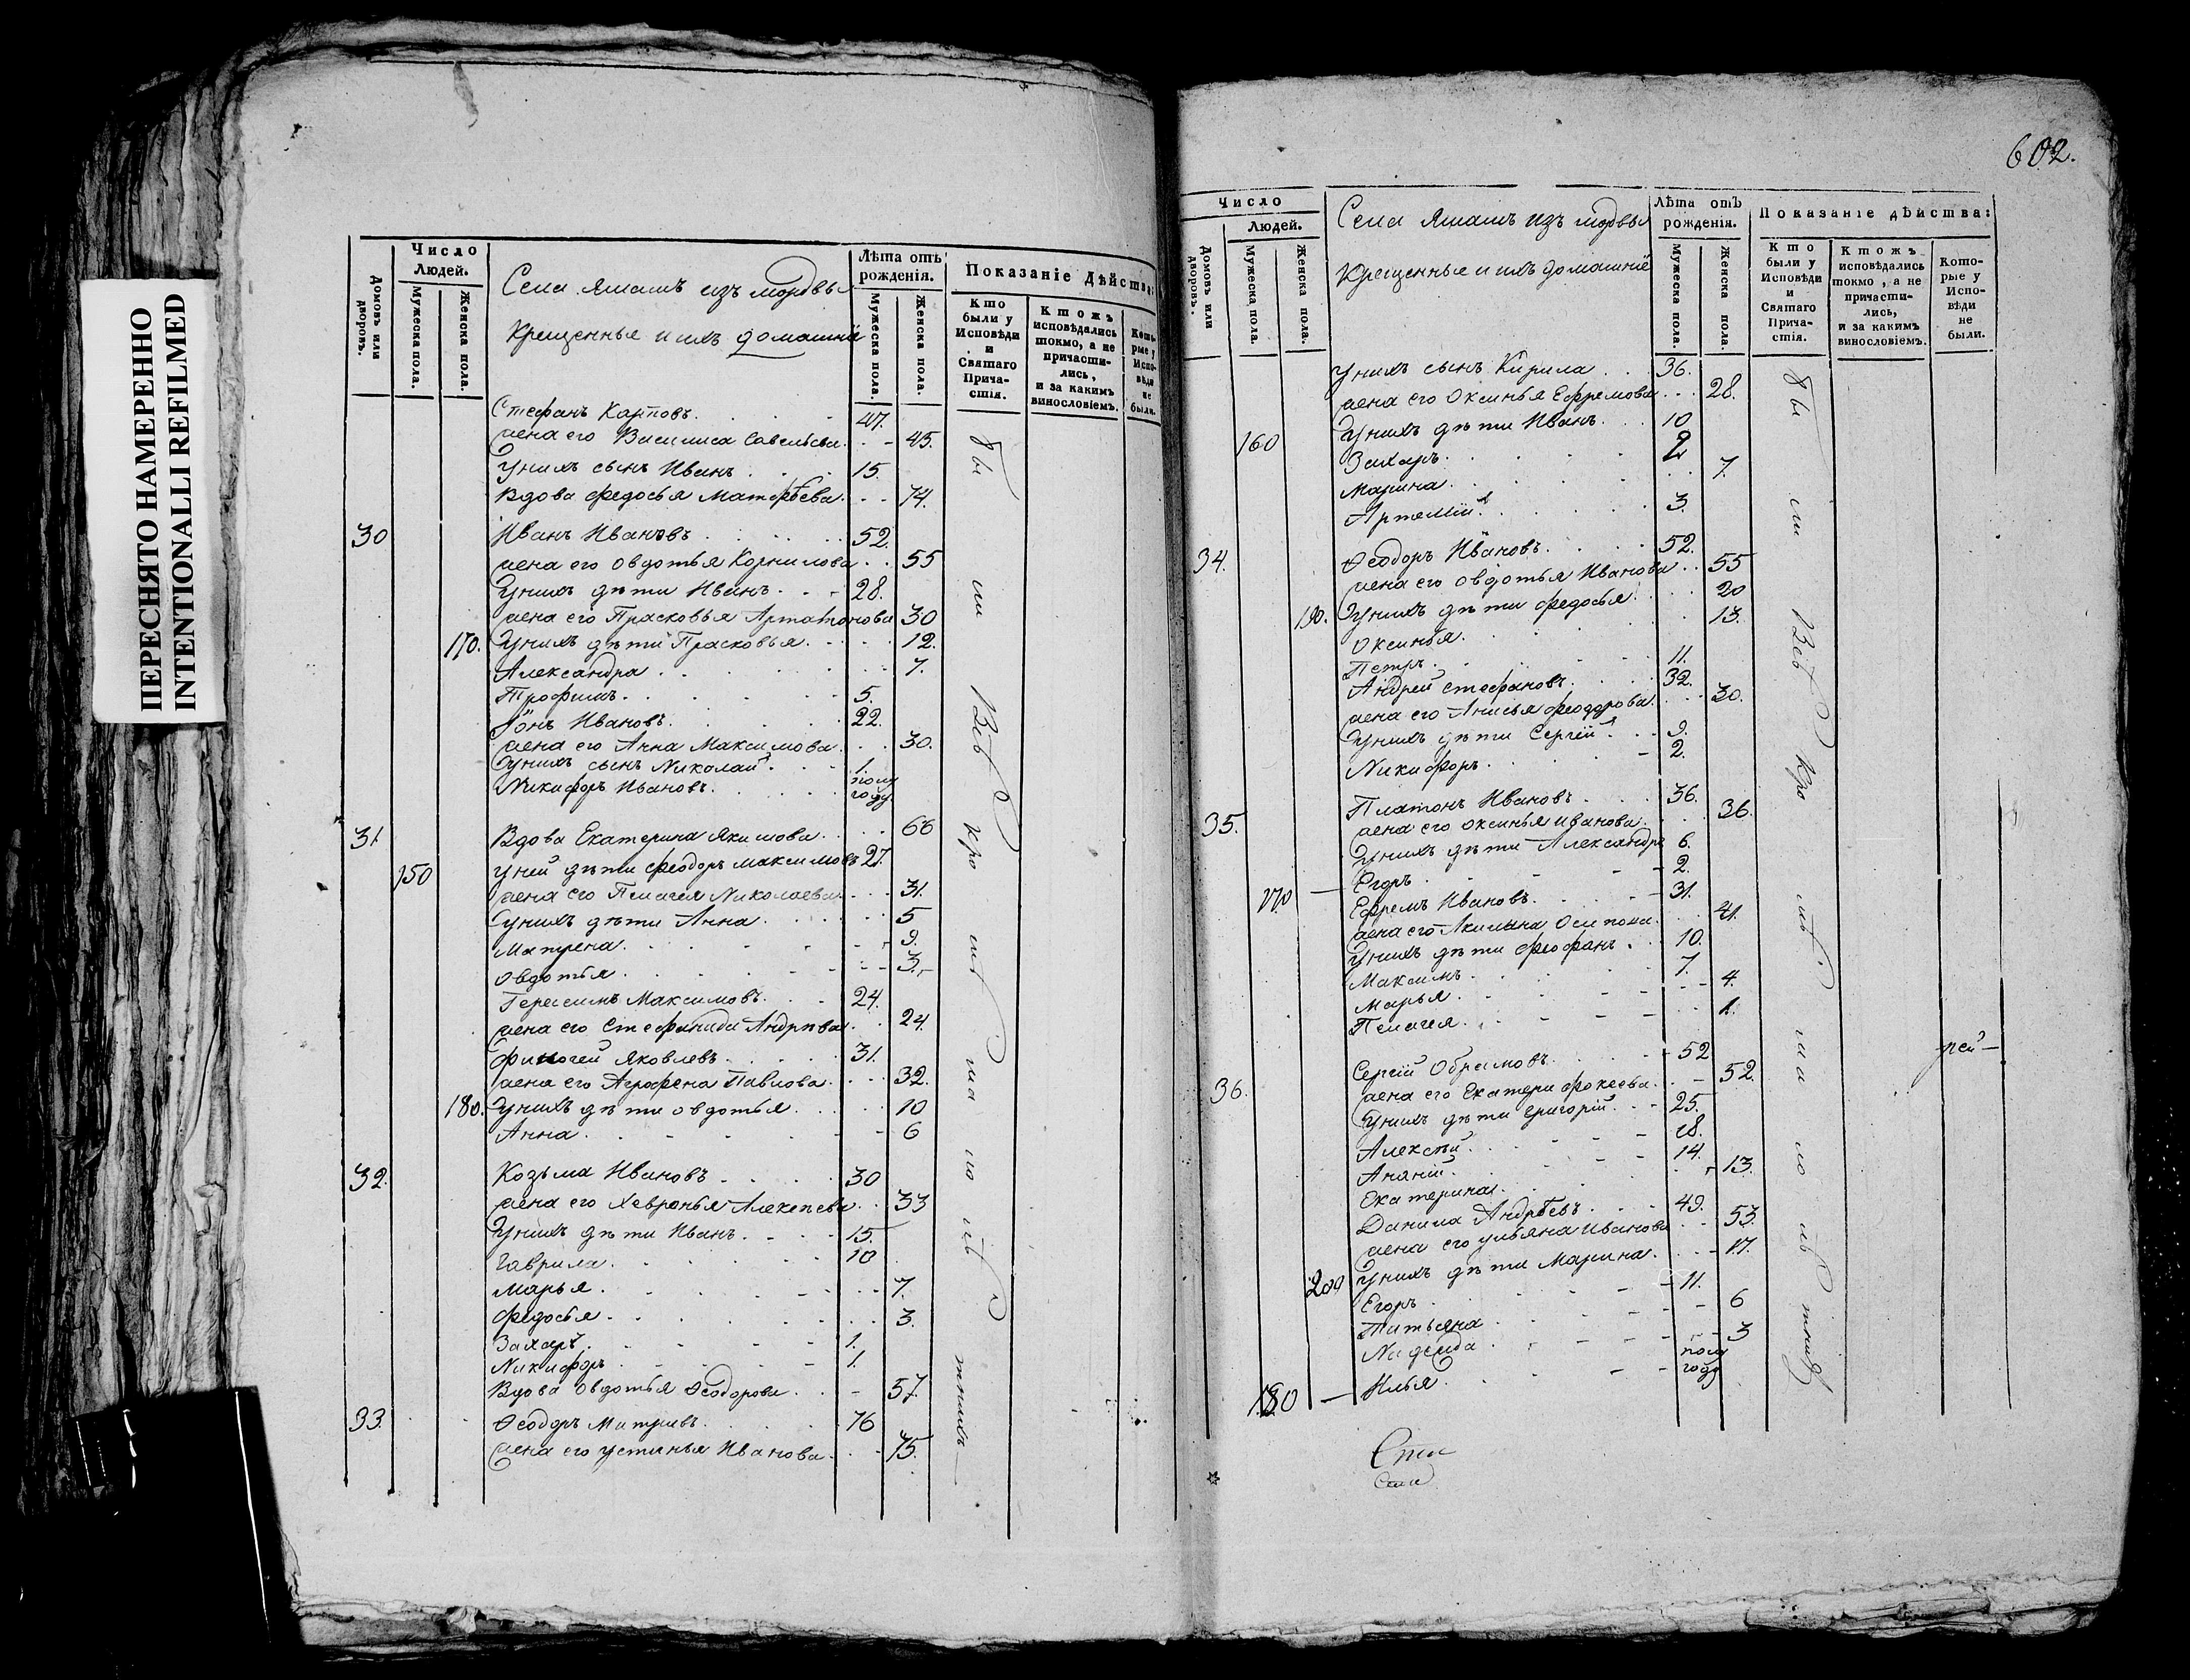 ПЕРЕСНЯТО НАМЕРЕННО
INTENTIONALLI REFILMED
Число
Людей.
Домовъ или дворовъ.
Мужеска пола.
Женска пола.
Села Ямашъ изъ мордвы
Крещенные и ихъ домашніе
Лѣта отъ рожденія.
Мужеска пола.
Женска пола.
Показаніе Дѣйства:
Кто были у Исповѣди и Святаго Причастія.
Ктожъ исповѣдались токмо, а не причастились, и за какимъ винословіемъ.
Которые у Исповѣди не были.
Стефанъ Карповъ. 47.
жена его Василиса Савельева. 45.
У нихъ сынъ Иванъ. 15.
Вдова Федосья Матфѣева. 74.
30 Иванъ Ивановъ 52.
жена его Овдотья Корнилова 55
У нихъ дѣти Иванъ. 28.
жена его Прасковья Артамонова 30
170. У нихъ дѣти Прасковья. 12.
Александра. 7.
Трофимъ. 5.
Іонъ Ивановъ. 22.
жена его Анна Максимова. 30.
У нихъ сынъ Николай. 1.
Никифоръ Ивановъ. полу году
31. Вдова Екатерина Якимова. 66
150 У ней дѣти Феодоръ Максимовъ 27.
жена его Пелагея Николаева 31.
У нихъ дѣти Анна. 5
Матрена. 9.
Овдотья. 3.
Герасимъ Максимовъ. 24.
жена его Стефанида Андреева. 24.
Яковлевъ. 31.
жена его Агрофена Павлова. 32.
180. У нихъ дѣти Овдотья. 10
Анна. 6
32. Козьма Ивановъ. 30
жена его Хевронья Алексеева. 33
У нихъ дѣти Иванъ. 15.
Гаврила. 10
Марья. 7.
Федосья. 3.
Захаръ. 1.
Никифоръ. 1.
Вдова Овдотья Ѳеодорова. 57.
33. Ѳеодоръ 76
жена его Устинья Иванова. 75.
602.
Число
Людей.
Домовъ или дворовъ.
Мужеска пола.
Женска пола.
Села Ямашъ изъ мордвы
Крещенные и ихъ домашніе
Лѣта отъ рожденія.
Мужеска пола.
Женска пола.
Показаніе дѣйства:
Кто были у Исповѣди и Святаго Причастія.
Ктожъ исповѣдались токмо, а не причастились, и за какимъ винословіемъ.
Которые у Исповѣди не были.
У нихъ сынъ Кирила. 36.
жена его Оксинья Ефремова. 28.
У нихъ дѣти Иванъ. 10
160 Захаръ. 9
Марина. 7.
Артемій. 3.
34. Ѳеодоръ Ивановъ. 52.
жена его Овдотья Иванова. 55
190. У нихъ дѣти Федосья. 20
Оксинья. 13.
Петръ. 11.
Андрей Стефановъ. 32.
жена его Анисья Феодорова. 30.
У нихъ дѣти Сергій. 9.
Никифоръ. 2.
35. Платонъ Ивановъ. 36.
жена его Оксинья Иванова. 36.
У нихъ дѣти Александръ 6.
Егоръ. 2.
170 Ефремъ Ивановъ. 31.
жена его Акилина Осипова. 41.
У нихъ дѣти Феофанъ. 10.
Максимъ. 7.
Марья. 4.
Пелагея. 1.
36. Сергій Обрамовъ. 52
жена его Екатери Фокеева. 52.
У нихъ дѣти Григорій. 25.
Алексѣй. 18.
Ананій. 14.
Екатерина. 13.
Данила Андрѣевъ. 49.
жена его Ульяна Иванова. 53.
У нихъ дѣти Марина. 17.
200 Егоръ. 11.
Татьяна. 6
Надежда. 3
180 Илья. полу году